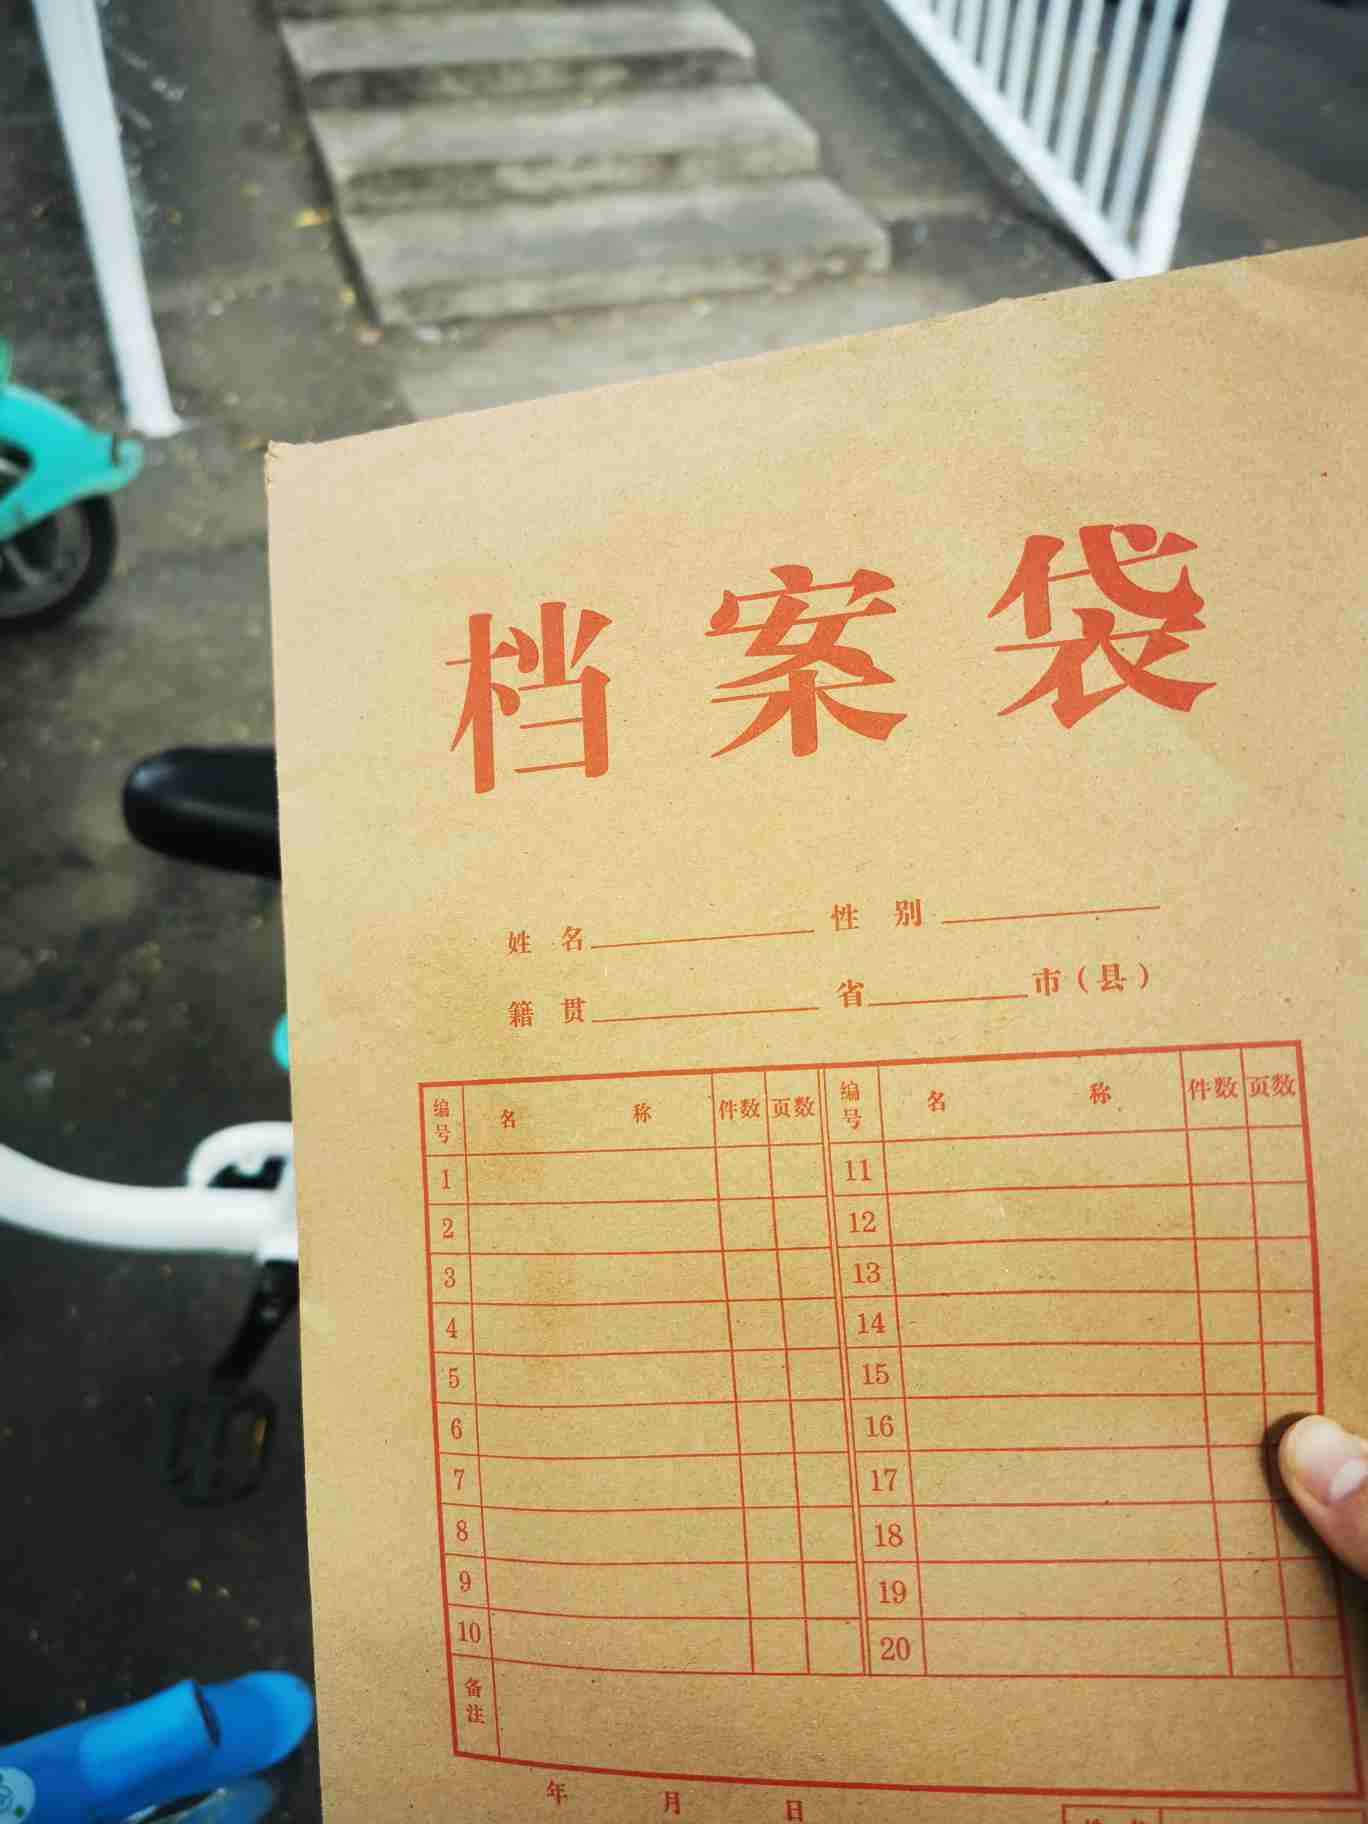 档案袋
姓名 性别
籍贯 省 市（县）
编号 名称 件数 页数 编号 名称 件数 页数
1 11
2 12
3 13
4 14
5 15
6 16
7 17
8 18
9 19
10 20
备注
年 月 日